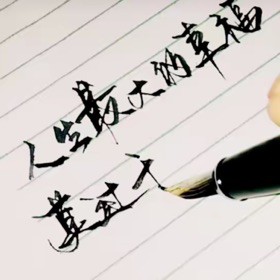 人生最大的幸福
莫过于